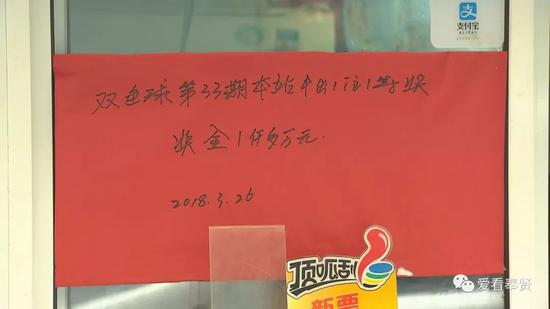 支付宝
ALIPAY
双色球第33期本站中出1注1等奖
奖金1仟多万元
2018.3.26
顶呱刮
新票
爱看奉贤